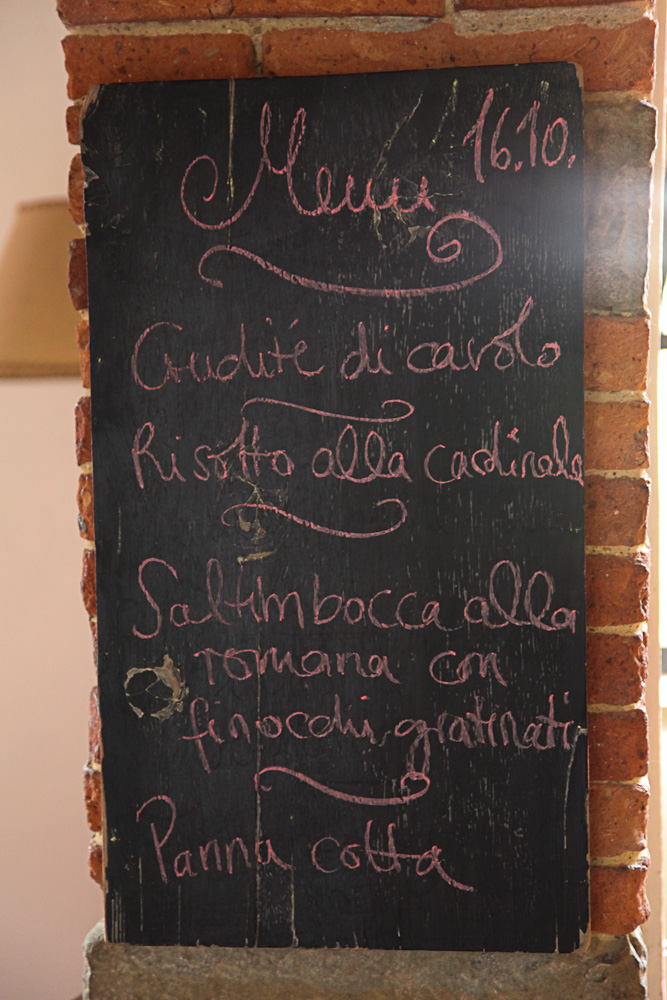 Menu 16.10.
Crudité di cavolo
Risotto alla cardinale
Saltimbocca alla
romana con
finocchi gratinati
Panna cotta